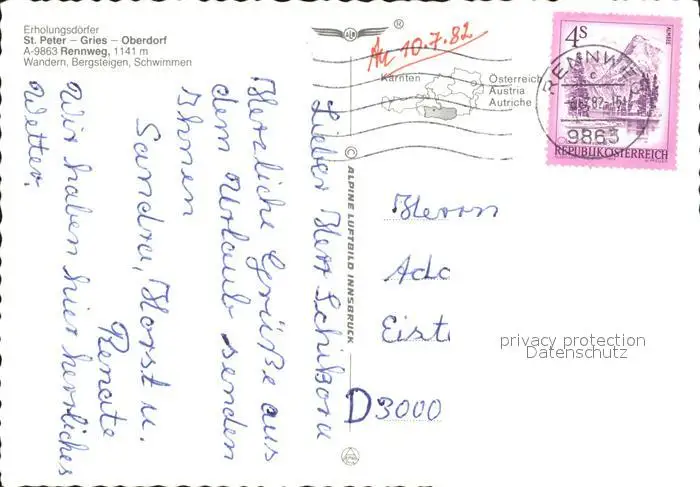 Erholungsdörfer
St. Peter – Gries – Oberdorf
A-9863 Rennweg, 1141 m
Wandern, Bergsteigen, Schwimmen
Lieber Herr Schibora
Herzliche Grüße aus
dem Urlaub senden
Ihnen
Sandra, Horst u.
Renate
Wir haben hier herrliches
Wetter.
®
10.7.82
Kärnten
Österreich
Austria
Autriche
© ALPINE LUFTBILD INNSBRUCK
4S
ALMSEE
RENNWEG
9863
REPUBLIK ÖSTERREICH
Herrn
Ado
Eist
D 3000
privacy protection
Datenschutz